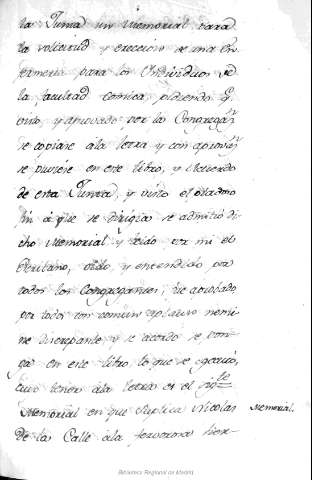 la Junta un Memorial para
la solicitud y ereccion de una En
fermeria para los Individuos de
la facultad comica, pidiendo q.
visto, y aprovado por la Congregaz.n
se copiase ala letra y con aprovaz.n
se pusiese en este libro, y Acuerdo
de esta Junta, y visto el
fin á que se dirigia se admitio di
cho Memorial, y leido por mi el
oido, y entendido por
todos los Congregantes, fue aprobado
por todos con comun aplauso nemi
ne discrepante y se acordo se pon
ga en este libro, lo que se egecutó,
cuio tenor ala letra es el sig.te
Memorial en que suplica Nicolas Memorial.
De la Calle ala fervorosa Her-
Biblioteca Regional de Madrid